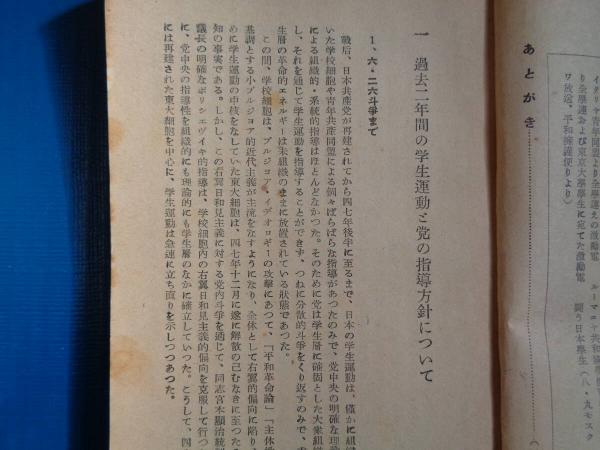 イタリヤ青年同盟より全學連えの激勵電
り全學連および東京大學學生に宛てた激勵電
ワ放送、平和擁護便りより)
ルーマニヤ共和
闘う日本學生(八・九モスク
あとがき
一 過去二年間の学生運動と党の指導方針について
1、六・二六斗爭まで
戰后、日本共產党が再建されてから四七年後半に至るまで、日本の学生運動は、僅かに組織
いた学校細胞や青年共產同盟による個々ばらばらな指導があつたのみで、党中央の明確な理論
による組織的・系統的指導はほとんどなかつた。そのために党は学生層に確固とした大衆組織
し、それを通じて学生運動を指導することができず、つねに分散的斗爭をくり返すのみで、
生層の革命的エネルギーは未組織のままに放置されている狀態であつた。
この間、学校細胞は、ブルジョア・イデオロギーの攻擊にあつて、「平和革命論」「主体性
基調とする小ブルジョア的近代主義が主流をなすようになり、全体として右翼的偏向に陷り、
めに学生運動の中核をなしていた東大細胞は、四七年十二月に遂に解散の己むなきに至つた
知の事実である。しかし、この右翼日和見主義に対する党内斗爭を通じて、同志宮本顯治統制
議長の明確なボリシエヴイキ的指導は、学校細胞内の右翼日和見主義的偏向を克服して行つ
に、党中央の指導性を組織的にも理論的にも学生層のなかに確立していつた。こうして、四
には再建された東大細胞を中心に、学生運動は急速に立ち直りを示しつつあつた。